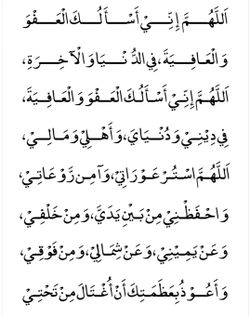 اَللّٰهُمَّ إِنِّيْ أَسْأَلُكَ الْعَفْوَ
وَالْعَافِيَةَ، فِي الدُّنْيَا وَالْآخِرَةِ،
اَللّٰهُمَّ إِنِّيْ أَسْأَلُكَ الْعَفْوَ وَالْعَافِيَةَ،
فِيْ دِيْنِيْ وَدُنْيَايَ، وَأَهْلِيْ وَمَالِيْ،
اَللّٰهُمَّ اسْتُرْ عَوْرَاتِيْ، وَآمِنْ رَوْعَاتِيْ،
وَاحْفَظْنِيْ مِنْ بَيْنِ يَدَيَّ، وَمِنْ خَلْفِيْ،
وَعَنْ يَمِيْنِيْ، وَعَنْ شِمَالِيْ، وَمِنْ فَوْقِيْ،
وَأَعُوْذُ بِعَظَمَتِكَ أَنْ أُغْتَالَ مِنْ تَحْتِيْ